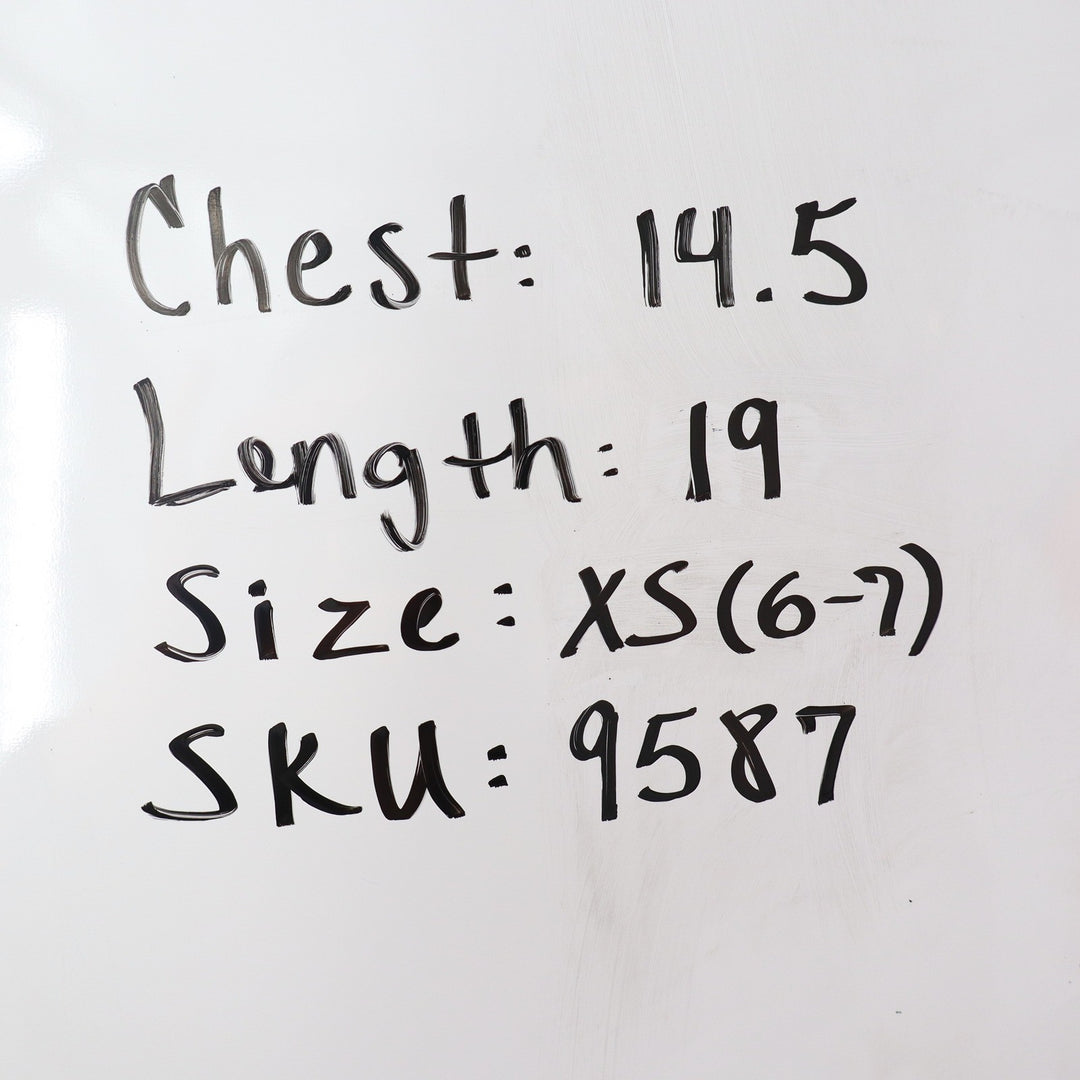 Chest: 14.5
Length: 19
Size: XS (6-7)
SKU: 9587